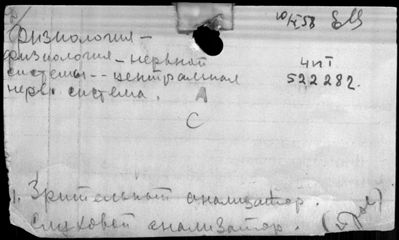 10/IX 58
физиология —
физиология — нервной
системы -- центральная
нерв. система. A
ЧиТ
522282.
C
1. Зрительный анализатор.
Слуховой анализатор.